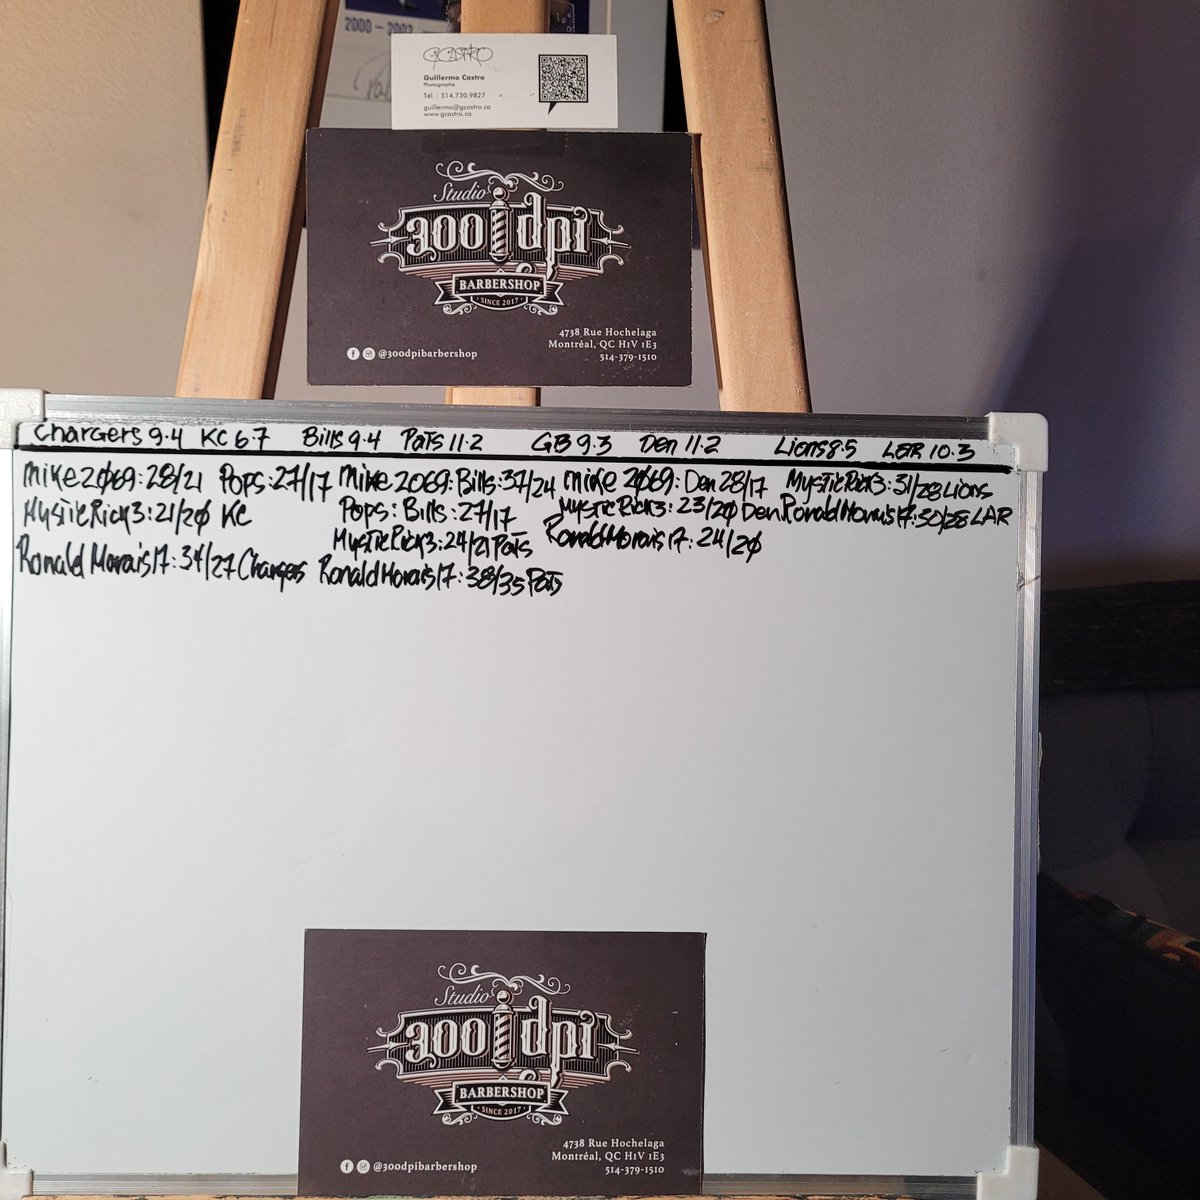 2000-2002
GCASTRO
Guillermo Castro
Photographe
Tel. : 514.730.9827
guillermo@gcastro.ca
www.gcastro.ca
Studio
300 dpi
BARBERSHOP
SINCE 2017
4738 Rue Hochelaga
Montréal, QC H1V 1E3
514-379-1510
@300dpibarbershop
Chargers 9.4 KC 6.7 Bills 9.4 Pats 11.2 GB 9.3 Den 11.2 Lions 8.5 LAR 10.3
Mike2069: 28/21 Pops: 27/17 Mike 2069: Bills: 37/24 Mike 2069: Den 28/17 MysticRick3: 31/28 Lions
MysticRick3: 21/20 KC Pops: Bills: 27/17 MysticRick3: 23/20 Den. RonaldMorais17: 30/28 LAR
MysticRick3: 24/21 Pats RonaldMorais17: 24/20
Ronald Morais17: 34/27 Chargers RonaldMorais17: 38/35 Pats
Studio
300 dpi
BARBERSHOP
SINCE 2017
4738 Rue Hochelaga
Montréal, QC H1V 1E3
514-379-1510
@300dpibarbershop